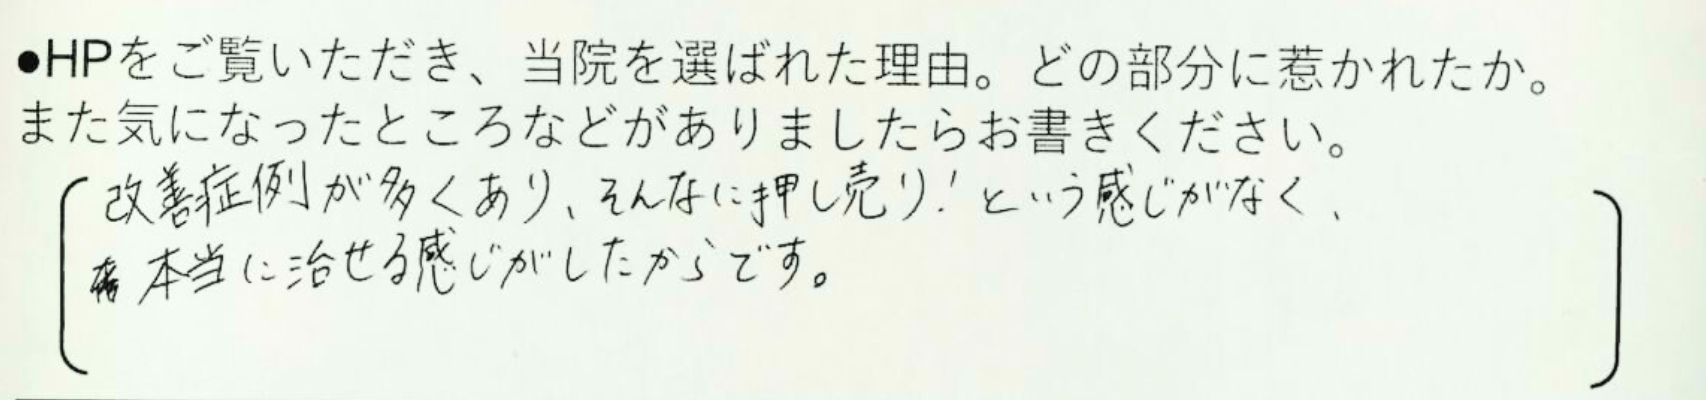 ●HPをご覧いただき、当院を選ばれた理由。どの部分に惹かれたか。
また気になったところなどがありましたらお書きください。
改善症例が多くあり、そんなに押し売り!という感じがなく、
本当に治せる感じがしたからです。